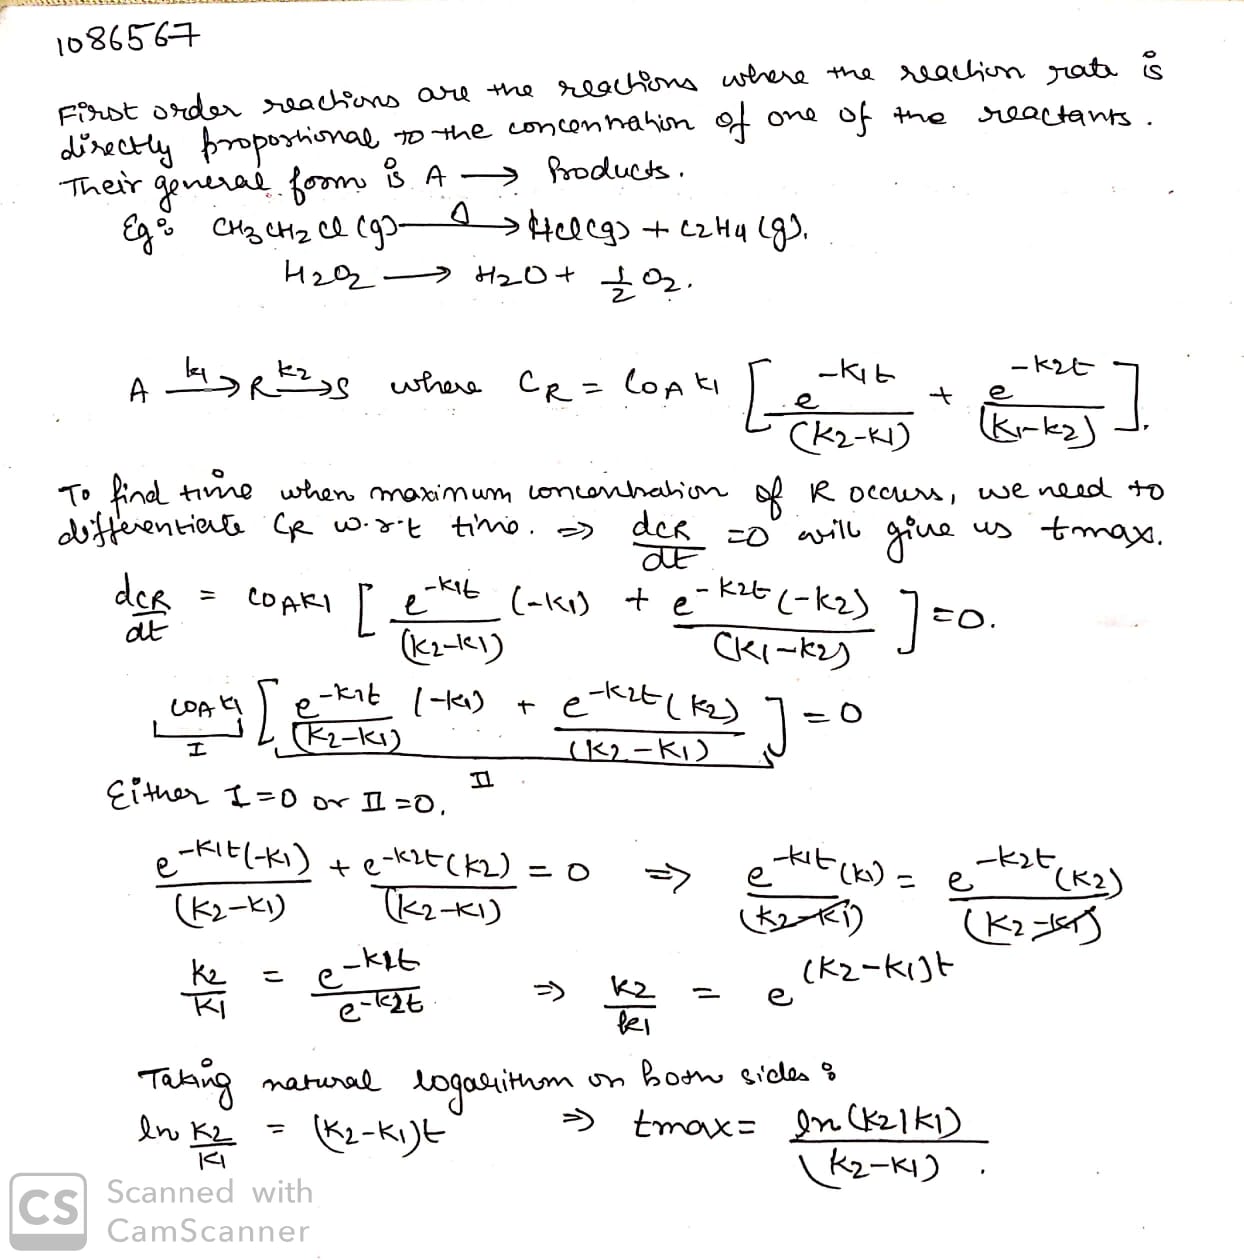 1086567
First order reactions are the reactions where the reaction rate is
directly proportional to the concentration of one of the reactants.
Their general form is A → Products.
Eg: CH3CH2Cl (g) —Δ→ HCl(g) + C2H4 (g).
H2O2 → H2O + 1/2 O2.
A —k1→ R —k2→ S where CR = C0A k1 [ e^-k1t/(K2-K1) + e^-k2t/(K1-k2) ].
To find time when maximum concentration of R occurs, we need to
differentiate CR w.r.t time. ⇒ dCR/dt =0 will give us tmax.
dCR/dt = C0AK1 [ e^-k1t (-K1)/(K2-K1) + e^-k2t (-k2)/(K1-k2) ] =0.
C0A K1 [ e^-k1t (-k1)/(K2-K1) + e^-k2t (k2)/(K2-K1) ] = 0
I II
Either I =0 or II =0.
e^-k1t(-K1)/(K2-K1) + e^-k2t(K2)/(K2-K1) = 0 ⇒ e^-k1t (k1)/(K2-K1) = e^-k2t (K2)/(K2-K1)
K2/K1 = e^-k1t/e^-k2t ⇒ K2/k1 = e^(K2-K1)t
Taking natural logarithm on both sides :
ln K2/K1 = (K2-K1)t ⇒ tmax = ln (K2/K1)/(K2-K1).
CS Scanned with
CamScanner